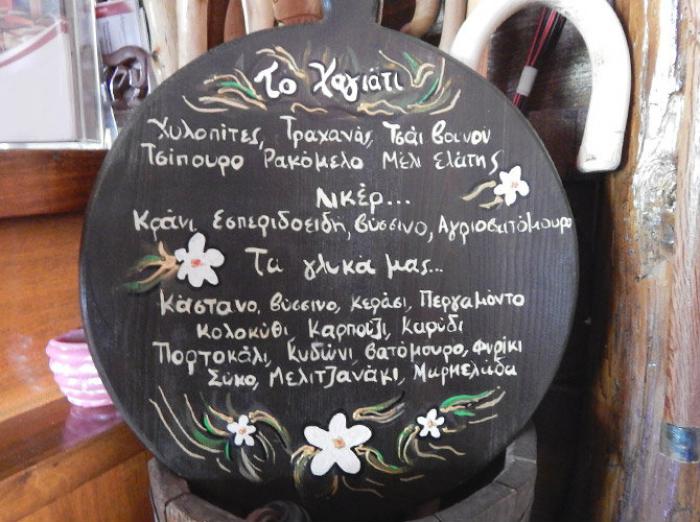 Το Χαγιάτι
Χυλοπίτες, Τραχανάς, Τσάι βουνου
Τσίπουρο Ρακόμελο Μέλι Ελάτης
Λικέρ...
Κράνι Εσπεριδοειδη, βύσσινο, Αγριοβατόμουρο
Τα γλυκά μας...
Κάστανο, βύσσινο, κεράσι, Περγαμόντο
Κολοκύθι Καρπούζι, Καρύδι
Πορτοκάλι, Κυδώνι, βατόμουρο, Φιρίκι
Σύκο, Μελιτζανάκι, Μαρμελάδα